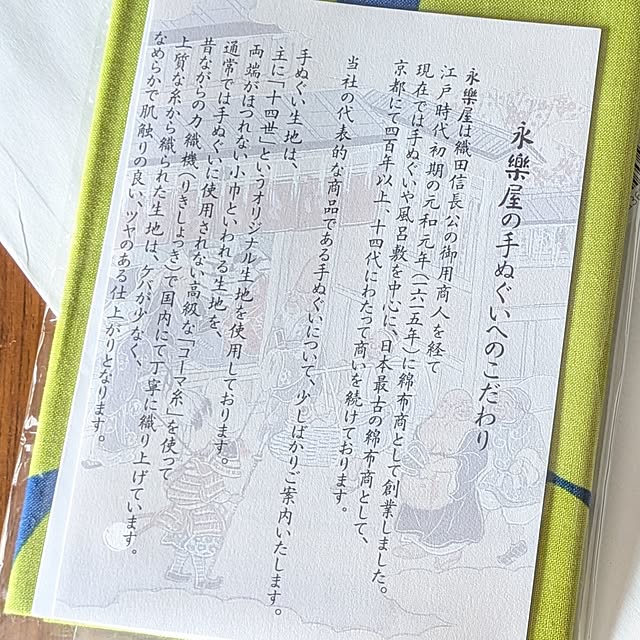 永樂屋の手ぬぐいへのこだわり
永樂屋は織田信長公の御用商人を経て
江戸時代初期の元和元年(一六一五年)に綿布商として創業しました。
現在では手ぬぐいや風呂敷を中心に、日本最古の綿布商として、
京都にて四百年以上、十四代にわたって商いを続けております。
当社の代表的な商品である手ぬぐいについて、少しばかりご案内いたします。
手ぬぐい生地は、
主に「十四世」というオリジナル生地を使用しております。
両端がほつれない小巾といわれる生地を、
通常では手ぬぐいに使用されない高級な「コーマ糸」を使って
昔ながらの力織機(りきしょっき)で国内にて丁寧に織り上げています。
上質な糸から織られた生地は、ケバが少なく、
なめらかで肌触りの良いツヤのある仕上がりとなります。